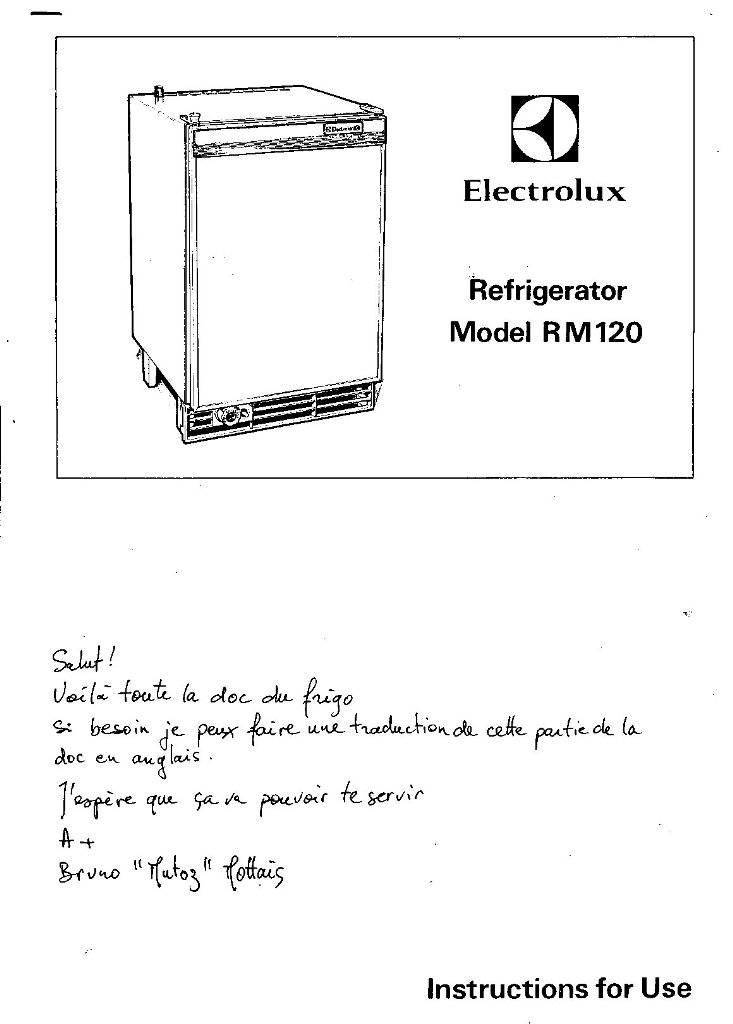 Electrolux
Refrigerator
Model RM120
Salut!
Voilà toute la doc du frigo
Si besoin je peux faire une traduction de cette partie de la
doc en anglais.
J'espère que ça va pouvoir te servir
A+
Bruno "Mutoz" Mottais
Instructions for Use